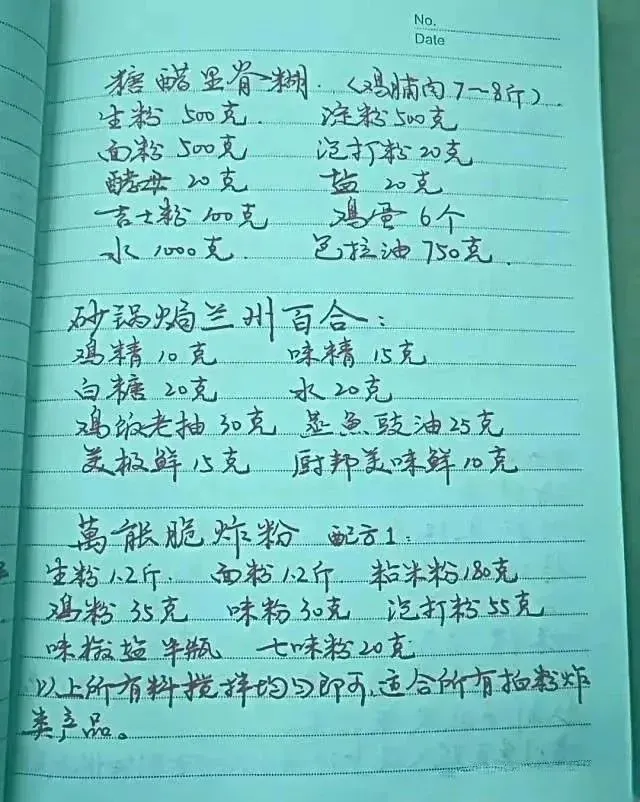 No.
Date
糖醋里脊糊.（鸡脯肉7—8斤）.
生粉 500克. 淀粉500克
面粉 500克 泡打粉20克
酵母 20克 盐 20克
吉士粉100克 鸡蛋 6个
水 1000克. 色拉油750克.
砂锅焗兰州百合：
鸡精10克 味精15克
白糖20克 水20克
鸡饭老抽30克 蒸魚豉油25克
美极鲜15克 厨邦美味鲜10克
萬能脆炸粉 配方1：
生粉1.2斤. 面粉1.2斤 粘米粉180克
鸡粉35克 味粉30克 泡打粉55克
味椒盐半瓶 七味粉20克
以上所有料搅拌均匀即可,适合所有拍粉炸
类产品。